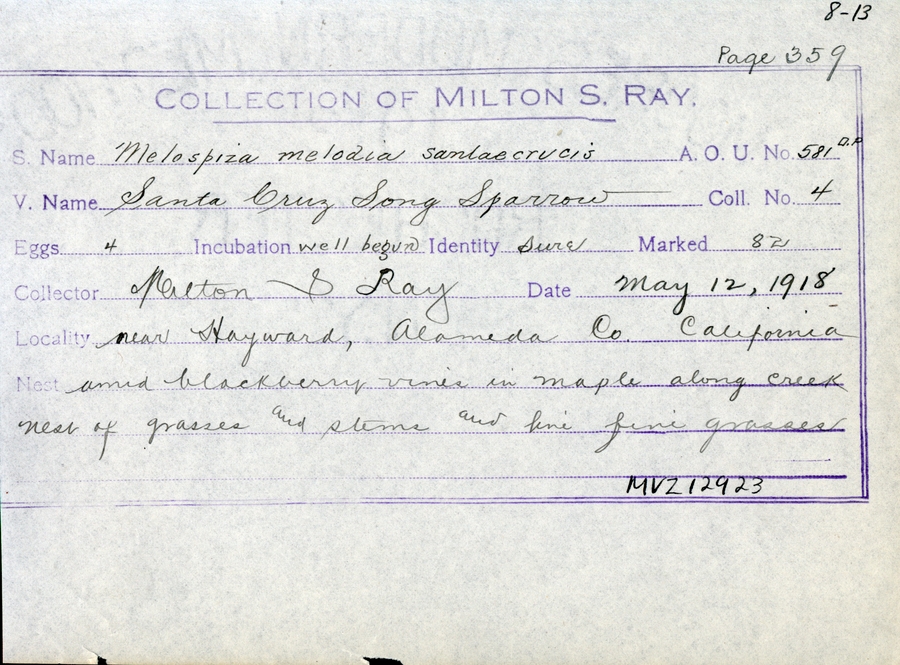 8-13
Page 359
COLLECTION OF MILTON S. RAY.
S. Name Melospiza melodia santaecrucis A. O. U. No. 581
V. Name Santa Cruz Song Sparrow Coll. No. 4
Eggs 4 Incubation well begun Identity sure Marked 82
Collector Milton S Ray Date May 12, 1918
Locality near Hayward, Alameda Co. California
Nest amid blackberry vines in maple along creek
nest of grasses and stems and fine fine grasses
MVZ12923